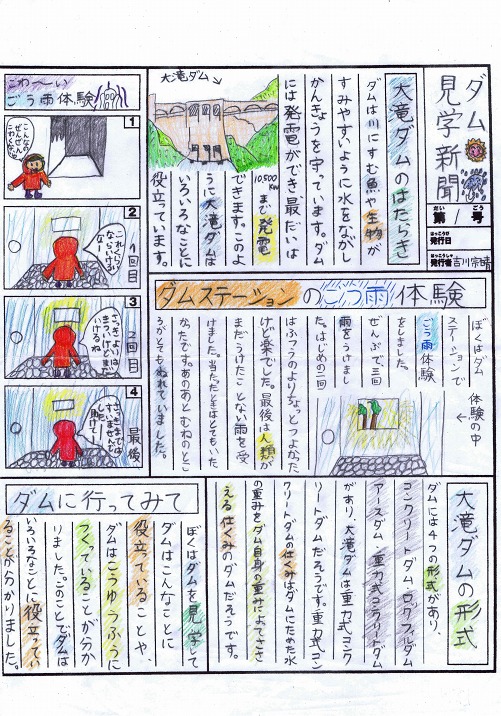 ダム見学新聞
だい
ごう
第1号
はっこうび
発行日
はっこうしゃ
発行者
大滝ダムのはたらき
ダムは川にすむ魚や生物が
すみやすいように水をながし
かんきょうを守っています。ダム
には発電ができ最だいは
10,500kwまで発電
できます。このよ
うに大滝ダムは
いろいろなことに
役立っています。
大滝ダム
ダムステーションのごう雨体験
ぼくはダム
ステーションで
ごう雨体験
をしました。
ぜんぶで三回
雨をうけまし
た。はじめの一回
はふつうのよりちょっとつよかった
けど楽でした。最後は人類が
まだうけたことない雨を受
けました。当たったときはとてもいた
かったです。あのあとむねのとこ
ろがとてもぬれていました。
←体験の中
こわ〜い
ごう雨体験
1
こんなの
ぜんぜん
こわくないぜ
2
1回目
これくらい
ならいける
なー
3
2回目
さっきよりは
まあつよいけどまだ
いけるね
4
最後
さっきまでは
すいませんでした
助けてー
大滝ダムの形式
ダムには4つの形式があり、
コンクリートダム、ロックフィルダム
アースダム、重力式コンクリートダム
があり、大滝ダムは重力式コンク
リートダムだそうです。重力式コン
クリートダムの仕くみはダムにためた水
の重みをダム自身の重みによってささ
える仕くみのダムだそうです。
ダムに行ってみて
ぼくはダムを見学して
ダムはこんなことに
役立っていることや、
ダムはこうゆうふうに
つくっていることが分か
りました。このことでダムは
いろいろなことに役立ってい
ることが分かりました。